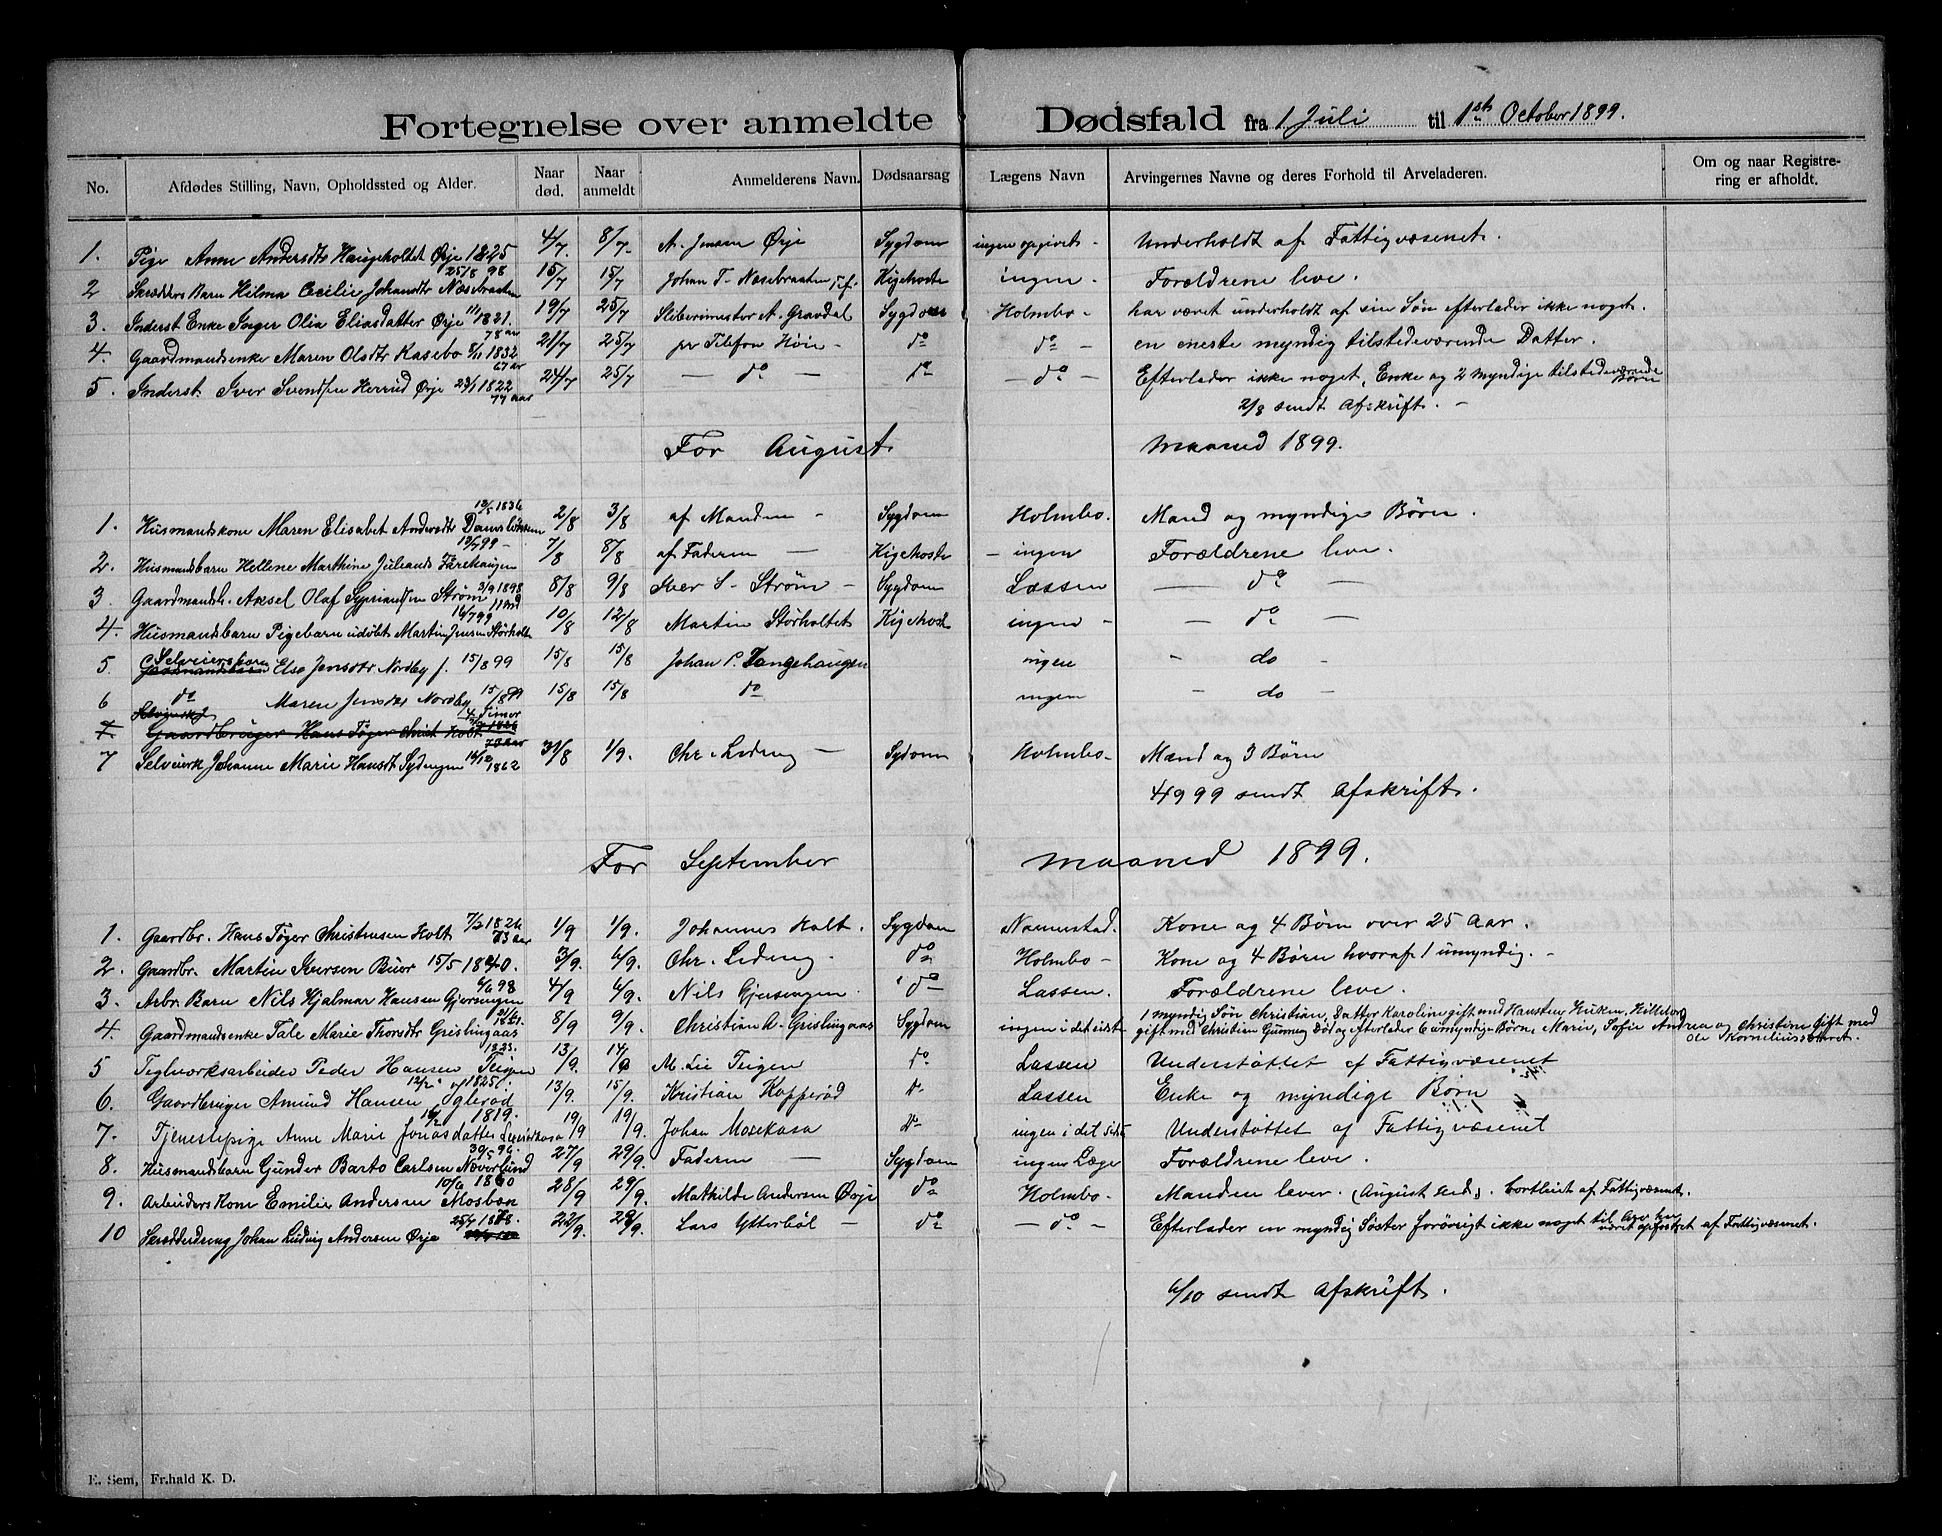 Fortegnelse over anmeldte Dødsfald fra 1 Juli til 1st October 1899.
No. Afdødes Stilling, Navn, Opholdssted og Alder. Naar død. Naar anmeldt Anmelderens Navn. Dødsaarsag Lægens Navn Arvingernes Navne og deres Forhold til Arveladeren. Om og naar Registrering er afholdt.
1. Pige Anne Andersdtr Haugeholtet Ørje 1825 4/7. 8/7. A. Jensen Ørje Sygdom ingen opgivet - Underholdt af Fattigvæsenet.
25/8 98
2 Skrædders Barn Hilma Cecilie Johansdtr Næsebraaten 15/7 15/7 Johan T. Næsebraaten Kigehoste ingen - Forældrene leve.
3. Inderst Enke Inger Olia Eliasdatter Ørje 1821. 19/7 25/7 Sliberimester A. Gravdal Sygdom Holmbo - har været underholdt af sin Søn efterlader ikke noget.
78 aar
4. Gaardmandsenke Maren Olsdtr Kasebo 8/11 1832 21/7 25/7 pr Telefon Høie - do do - en eneste myndig tilstedeværende Datter.
67 aar
5. Inderst Iver Svendsen Herrud Ørje 1822 24/7 25/7 - do - do - do - Efterlader ikke noget, Enke og 2 myndige tilstedeværende Børn
77 aar
2/8 sendt Afskrift. -
For August maaned 1899.
1836
1. Husmandskone Maren Elisabet Andersdtr 2/8 3/8 af Manden - Sygdom Holmbo. Mand og myndige Børn.
2. Husmandsbarn Hellene Marthine Juliansd 7/8 8/8 af Faderen - Kigehoste - ingen Forældrene leve.
3/9 1898
3. Gaardmandsb. Aksel Olaf Sypriansen Strøm 8/8 9/8 Iver S. Strøm - Sygdom Lassen - do -
11 md
16/7 99
4. Husmandsbarn Pigebarn udøbt Martin Jensen Storholt 10/8 12/8 Martin Storholtet Kigehoste ingen - - do -
5. Selveiersbarn Else Jensdtr Nordby f. 15/8 99 15/8 15/8 Johan P. Tangehaugen ingen - do -
6 do Maren Jensdtr Nordby 15/8 99 15/8 15/8 do ingen - do -
4 Timer
7 Gaardbruger Hans Tøger Christ Holt
73 aar
7 Selveierk Johanne Marie Hansdt Sydengen 1862 31/8 1/9. Chr. Lideng - Sygdom Holmbo - Mand og 3 Børn
4/9 99 sendt Afskrift.
For September maaned 1899.
1. Gaardbr. Hans Tøger Christensen Holt 7/2 1826 1/9 1/9. Johannes Holt. Sygdom Kone og 4 Børn over 25 Aar.
73 aar
2. Gaardbr. Martin Iversen Buer 15/5 1840. 3/9. 6/9. Chr. Lideng. do Holmbo - Kone og 4 Børn hvoraf 1 umyndig. -
6/6 98
3. Arbr. Barn Nils Hjalmar Hansen Gjørsengen 4/9 6/9. Nils Gjersengen. do Lassen. Forældrene leve.
4. Gaardmandsenke Tale Marie Thorsdtr Grislingaas 8/9 9/9. Christian A. Grislingaas Sygdom ingen i det sidste 1 myndig Søn Christian, Datter Karoline gift med Hansten Huken,
gift med Christian Gunneng Død og efterlader 6 umyndige Børn, Marie, Sofie Andrea og Christine Gift med
Ole Korneliussen
1823.
5 Teglverksarbeider Peder Hansen Teigen 13/9. 14/9 M. Lie Teigen do Lassen Understøttet af Fattigvæsenet
12/2 1825.
6. Gaardbruger Amund Hansen Ysterød 13/9. 15/9. Kristian Kopperød do Lassen Enke og myndige Børn
1819.
7. Tjenestepige Anne Marie Jonasdatter 19/9 19/9. Johan Mosekasa do ingen i det sidste Understøttet af Fattigvæsenet
30/5 96.
8. Husmandsbarn Gunder Barto Carlsen Næverlund 27/9 29/9. Faderen - Sygdom ingen Læge Forældrene leve.
1860
9. Arbeiders Kone Emilie Andersen Mosbæk 28/9 29/9. Mathilde Andersen Ørje do Holmbo - Manden lever. (August ). bortlivet af Fattigvæsenet.
10 Skrædderdreng Johan Ludvig Andersen Ørje 25/4 1878. 22/9. 29/9. Lars Ytterbøl - do - do - Efterlader en myndig Søster forøvrigt ikke noget til Arv har været opfostret af Fattigvæsenet.
6/10 sendt Afskrift.
E. Sem, Fr.hald K. D.